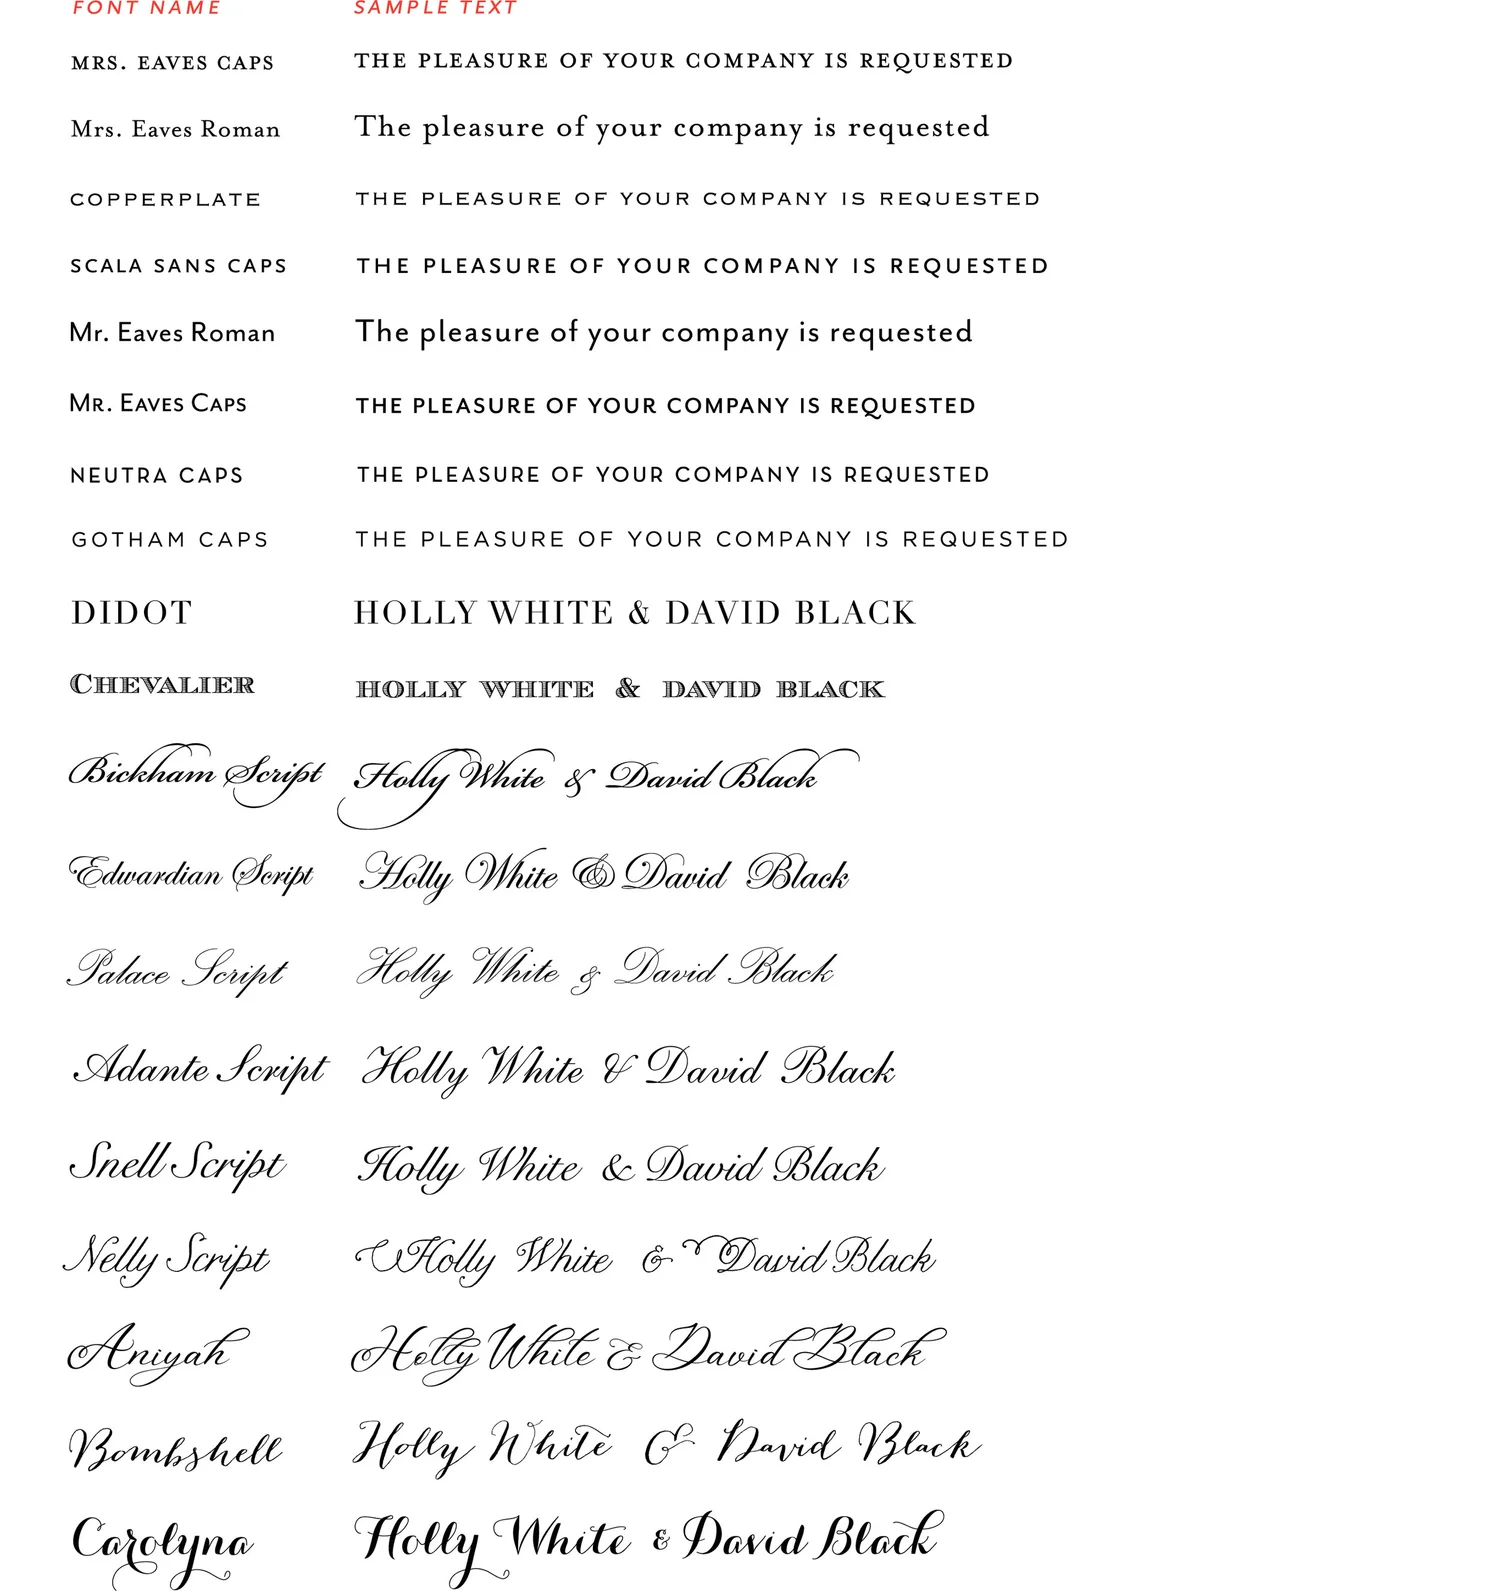 FONT NAME SAMPLE TEXT
MRS. EAVES CAPS THE PLEASURE OF YOUR COMPANY IS REQUESTED
Mrs. Eaves Roman The pleasure of your company is requested
COPPERPLATE THE PLEASURE OF YOUR COMPANY IS REQUESTED
SCALA SANS CAPS THE PLEASURE OF YOUR COMPANY IS REQUESTED
Mr. Eaves Roman The pleasure of your company is requested
MR. EAVES CAPS THE PLEASURE OF YOUR COMPANY IS REQUESTED
NEUTRA CAPS THE PLEASURE OF YOUR COMPANY IS REQUESTED
GOTHAM CAPS THE PLEASURE OF YOUR COMPANY IS REQUESTED
DIDOT HOLLY WHITE & DAVID BLACK
CHEVALIER HOLLY WHITE & DAVID BLACK
Bickham Script Holly White & David Black
Edwardian Script Holly White & David Black
Palace Script Holly White & David Black
Adante Script Holly White & David Black
Snell Script Holly White & David Black
Nelly Script Holly White & David Black
Aniyah Holly White & David Black
Bombshell Holly White & David Black
Carolyna Holly White & David Black